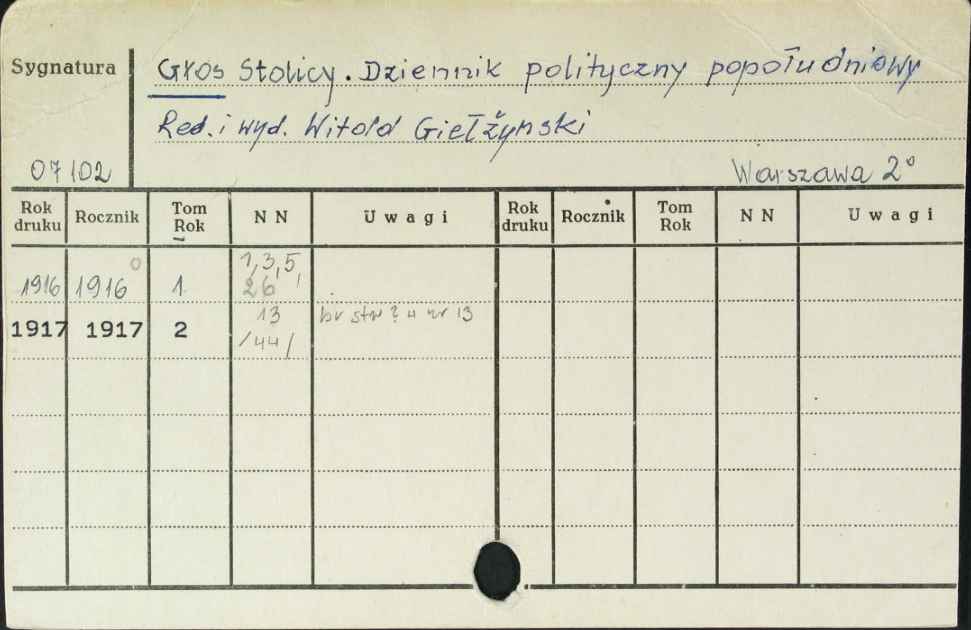 Sygnatura
Głos Stolicy. Dziennik polityczny popołudniowy
Red. i wyd. Witold Giełżyński
07102
Warszawa 2°
Rok druku Rocznik Tom Rok NN Uwagi Rok druku Rocznik Tom Rok NN Uwagi
1916 1916 1 1,3,5, 26
1917 1917 2 13 /44/ br str 2 u nr 13